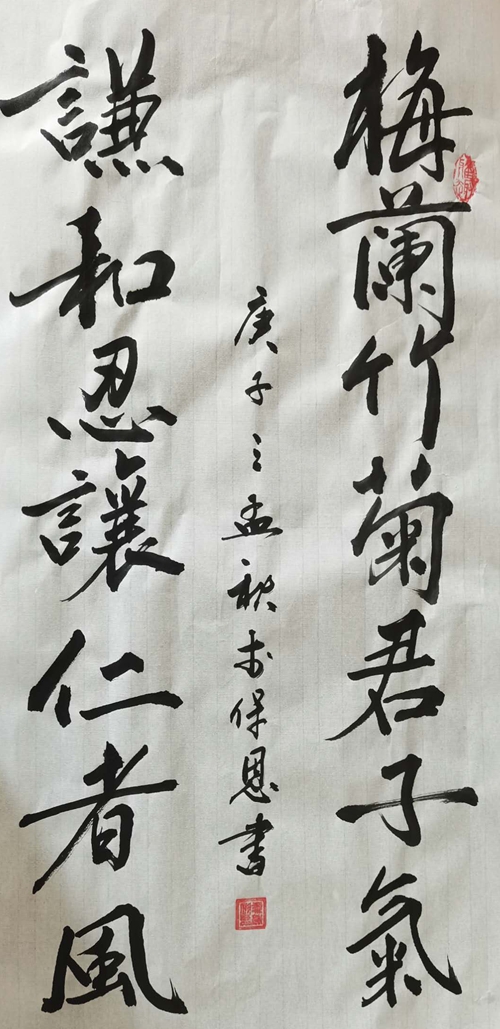 梅蘭竹菊君子氣
謙和忍讓仁者風
庚子之孟秋保恩書